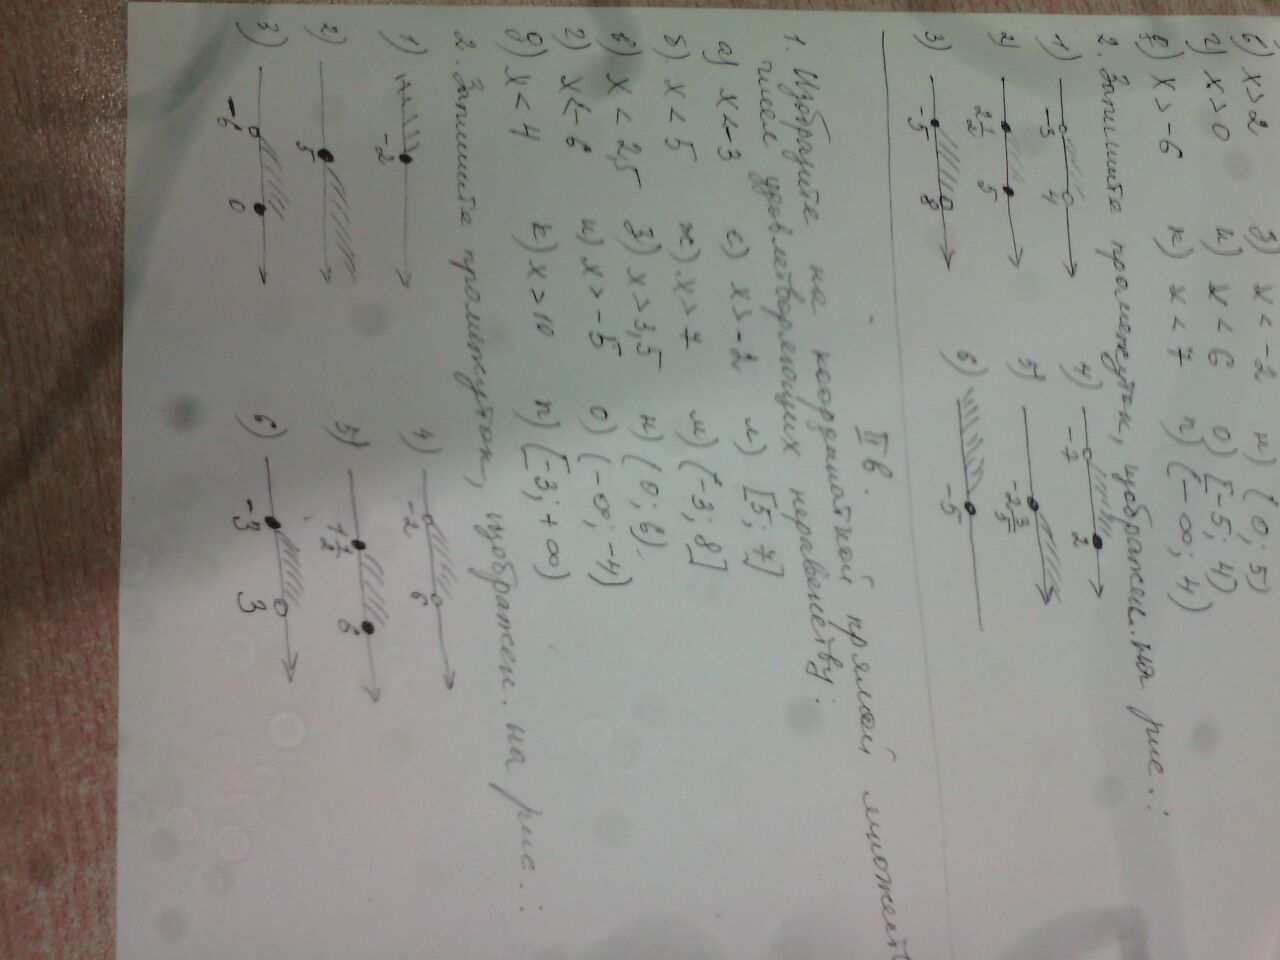 в) x > 2 з) x < -2 н) (0; 5)
г) x > 0 и) x < 6 о) [-5; 4)
д) x > -6 к) x < 7 п) (-∞; 4)
2. Запишите промежуток, изображен. на рис.:
1) -3 4 4) -7 2
2) 2 1/2 5 5) -2 3/5
3) -5 8 6) -5
II в.
1. Изобразите на координатной прямой множеств
чисел удовлетворяющих неравенству:
а) x < -3 е) x > -2 л) [5; 7]
б) x < 5 ж) x > 7 м) (-3; 8]
в) x < 2,5 з) x > 3,5 н) (0; 6).
г) x < -6 и) x > -5 о) (-∞; -4)
д) x < 4 к) x > 10 п) [-3; +∞)
2. Запишите промежуток, изображен. на рис.:
1) -2 4) -2 6
2) 5 5) 6
3) -6 0 6) -3 3